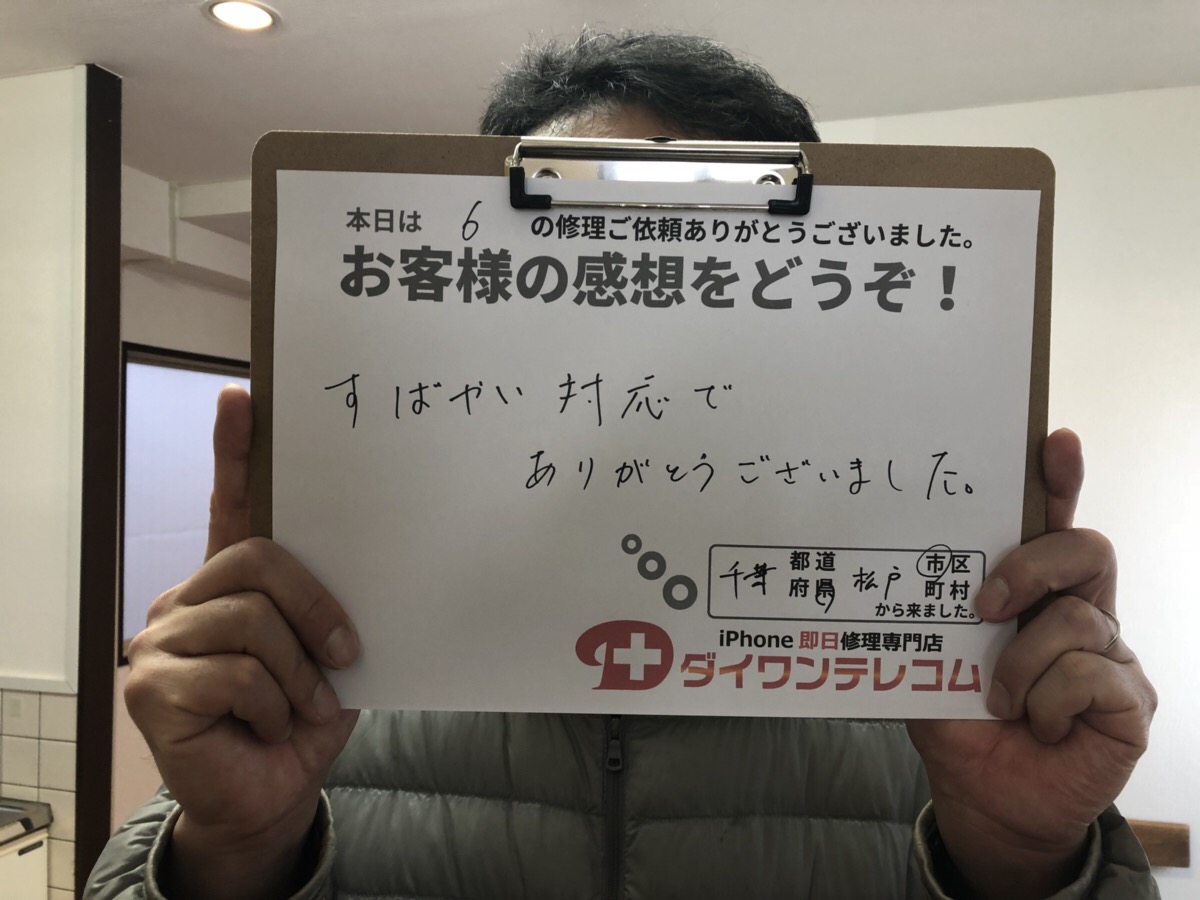 本日は 6 の修理ご依頼ありがとうございました。
お客様の感想をどうぞ！
すばやい対応で
ありがとうございました。
千葉 都道府県 松戸 市区町村
から来ました。
iPhone 即日修理専門店
ダイワンテレコム